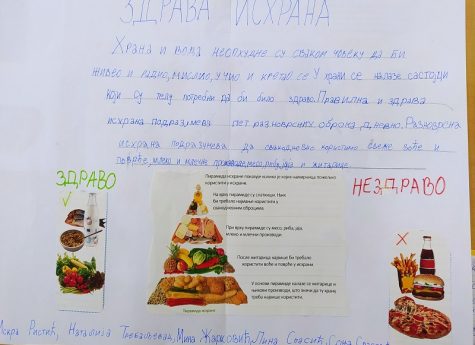 ЗДРАВА ИСХРАНА
Храна и вода неопходне су сваком човеку да би
живео и радио, мислио, учио и кретао се. У храни се налазе састојци
који су телу потребни да би било здраво. Правилна и здрава
исхрана подразумева пет разноврсних оброка дневно. Разноврсна
исхрана подразумева да свакодневно користимо свеже воће и
поврће, млеко и млечне производе, месо, рибу, јаја и житарице.
ЗДРАВО
НЕЗДРАВО
Пирамида исхране показује колико је којих намирница пожељно
користити у исхрани.
На врху пирамиде су слаткиши. Њих
би требало најмање користити у
свакодневним оброцима.
При врху пирамиде су месо, риба, јаја,
млеко и млечни производи.
После житарица највише би требало
користити воће и поврће у исхрани.
У основи пирамиде налазе се житарице и
њихови производи, што значи да ту храну
треба највише користити.
Пирамида исхране
Искра Ристић, Наталија Миња Жарковић, Лина Спасић,